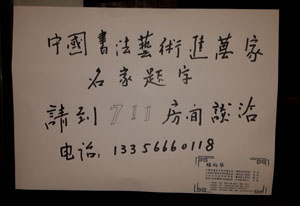 中國書法藝術進萬家
名家題字
請到711房间談洽
电话:13356660118